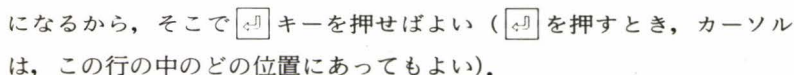 になるから，そこで⏎キーを押せばよい（⏎を押すとき，カーソル
は，この行の中のどの位置にあってもよい），